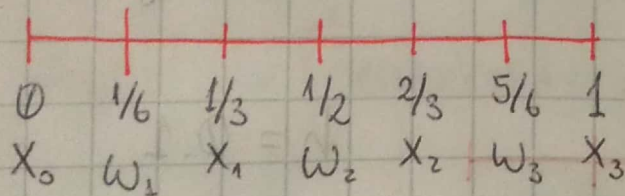 0 1/6 1/3 1/2 2/3 5/6 1
X₀ W₁ X₁ W₂ X₂ W₃ X₃